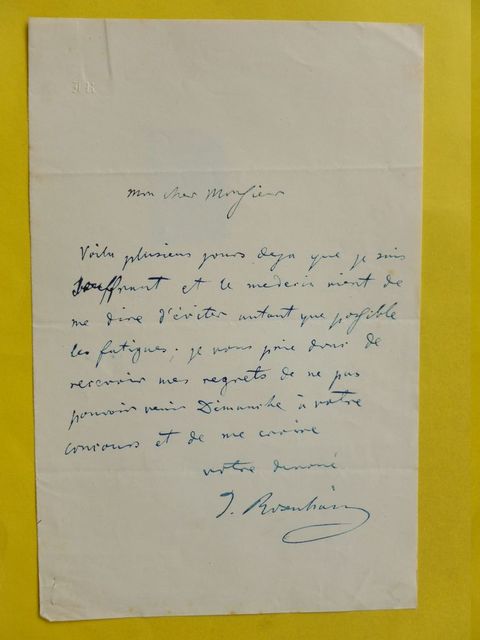 J R
mon cher Monsieur
Voilà plusieurs jours deja que je suis
souffrant et le medecin vient de
me dire d'éviter autant que possible
les fatigues; je vous prie donc de
recevoir mes regrets de ne pas
pouvoir venir Dimanche à votre
concours et de me croire
votre devoué
J. Rosenhain